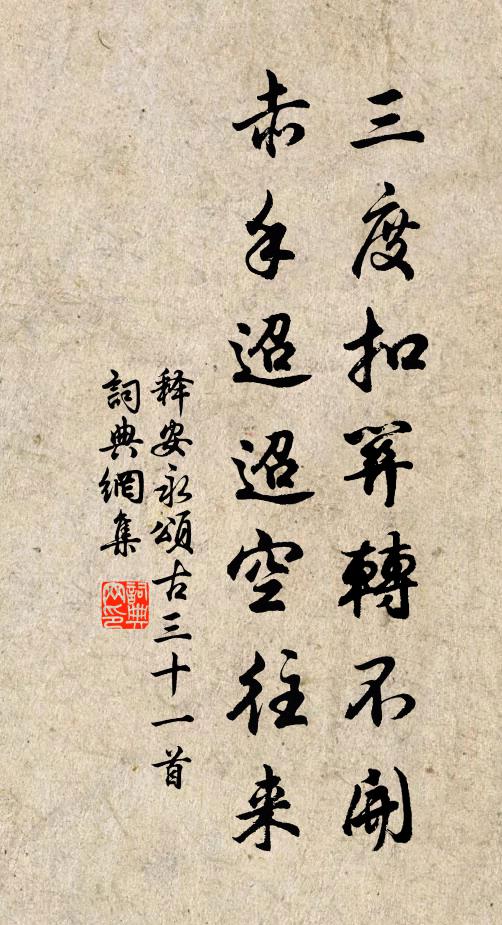 三度扣關轉不開
赤手迢迢空往来
释安永頌古三十一首
詞典網集
詞典
网印